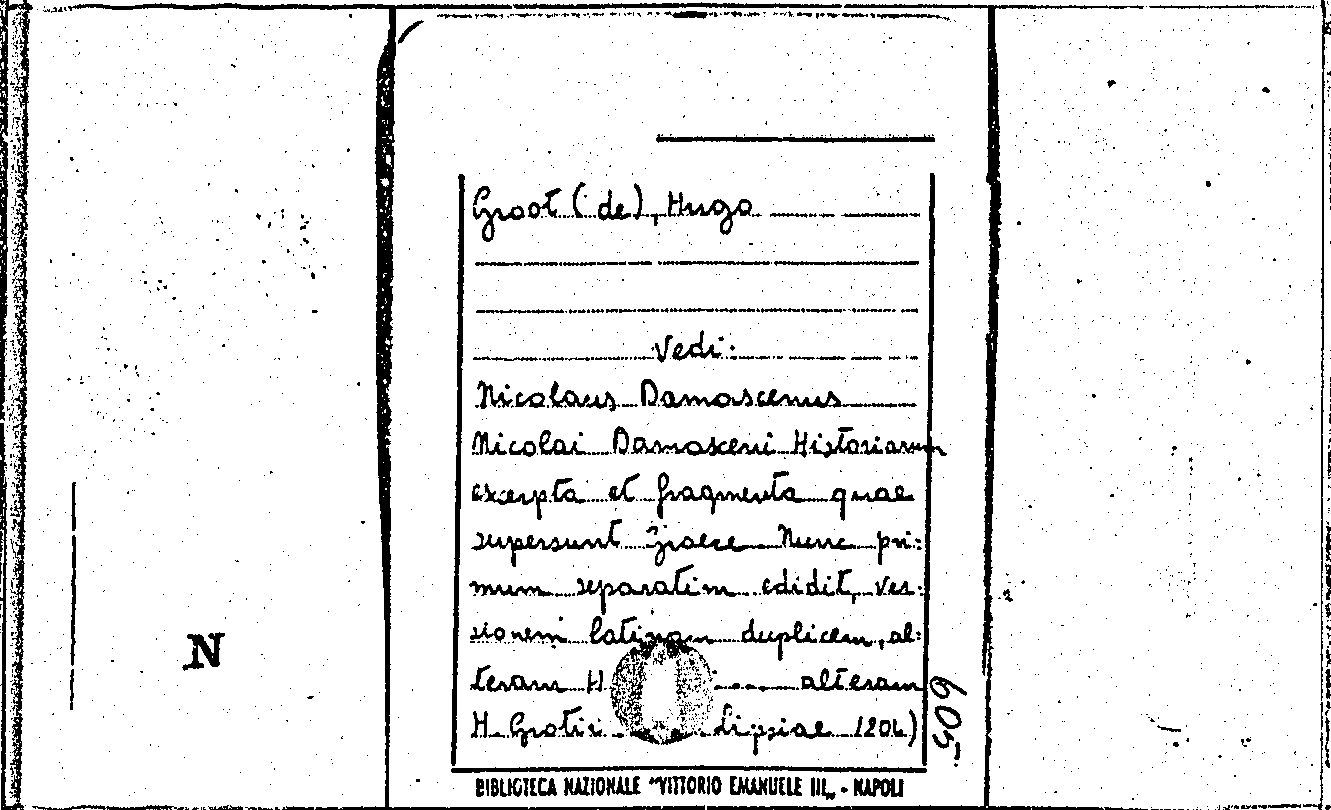 Groot (de), Hugo
Vedi:
Nicolaus Damascenus
Nicolai Damasceni Historiarum
excerpta et fragmenta quae
supersunt graece Nunc pri:
mum separatim edidit, ver:
sionem latinam duplicem, al:
teram H alteram
H. Grotii Lipsiae 1804)
605
N
BIBLIOTECA NAZIONALE "VITTORIO EMANUELE III" - NAPOLI